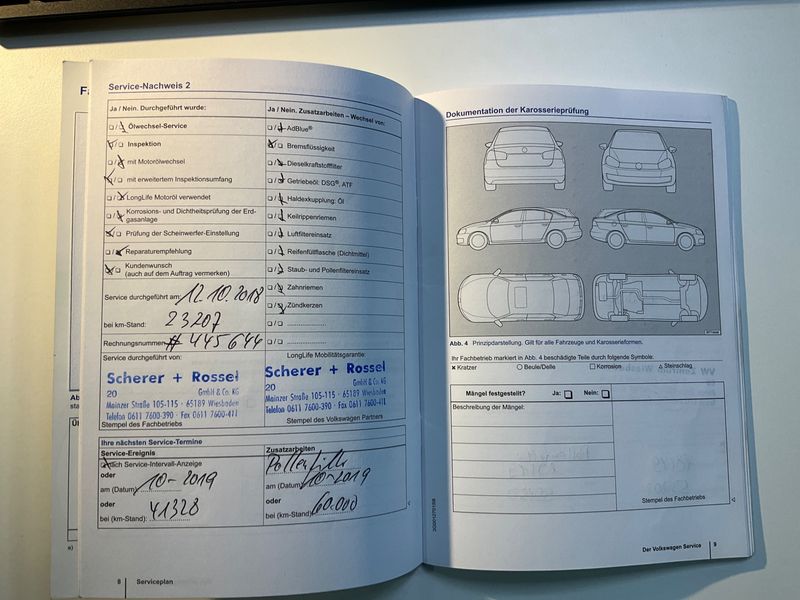 Service-Nachweis 2
Ja / Nein. Durchgeführt wurde:
Ja / Nein. Zusatzarbeiten – Wechsel von:
Ölwechsel-Service
AdBlue®
Inspektion
Bremsflüssigkeit
mit Motorölwechsel
Dieselkraftstofffilter
mit erweitertem Inspektionsumfang
Getriebeöl: DSG®, ATF
LongLife Motoröl verwendet
Haldexkupplung: Öl
Korrosions- und Dichtheitsprüfung der Erd-
gasanlage
Keilrippenriemen
Prüfung der Scheinwerfer-Einstellung
Luftfiltereinsatz
Reparaturempfehlung
Reifenfüllflasche (Dichtmittel)
Kundenwunsch
(auch auf dem Auftrag vermerken)
Staub- und Pollenfiltereinsatz
Zahnriemen
Zündkerzen
Service durchgeführt am: 12.10.2018
bei km-Stand: 23207
Rechnungsnummer: # 445644
Service durchgeführt von:
LongLife Mobilitätsgarantie:
Scherer + Rossel
20 GmbH & Co. KG
Mainzer Straße 105-115 · 65189 Wiesbaden
Telefon 0611 7600-390 · Fax 0611 7600-411
Stempel des Fachbetriebs
Scherer + Rossel
20 GmbH & Co. KG
Mainzer Straße 105-115 · 65189 Wiesbaden
Telefon 0611 7600-390 · Fax 0611 7600-411
Stempel des Volkswagen Partners
Ihre nächsten Service-Termine
Service-Ereignis
Zusatzarbeiten
lich Service-Intervall-Anzeige
Pollenfilter
oder
am (Datum): 10-2019
am (Datum): 10-2019
oder
oder
bei (km-Stand): 41328
bei (km-Stand): 60.000
8 Serviceplan
Dokumentation der Karosserieprüfung
Abb. 4 Prinzipdarstellung. Gilt für alle Fahrzeuge und Karosserieformen.
Ihr Fachbetrieb markiert in Abb. 4 beschädigte Teile durch folgende Symbole:
× Kratzer ○ Beule/Delle □ Korrosion △ Steinschlag
Mängel festgestellt? Ja: Nein:
Beschreibung der Mängel:
Stempel des Fachbetriebs
Der Volkswagen Service 9